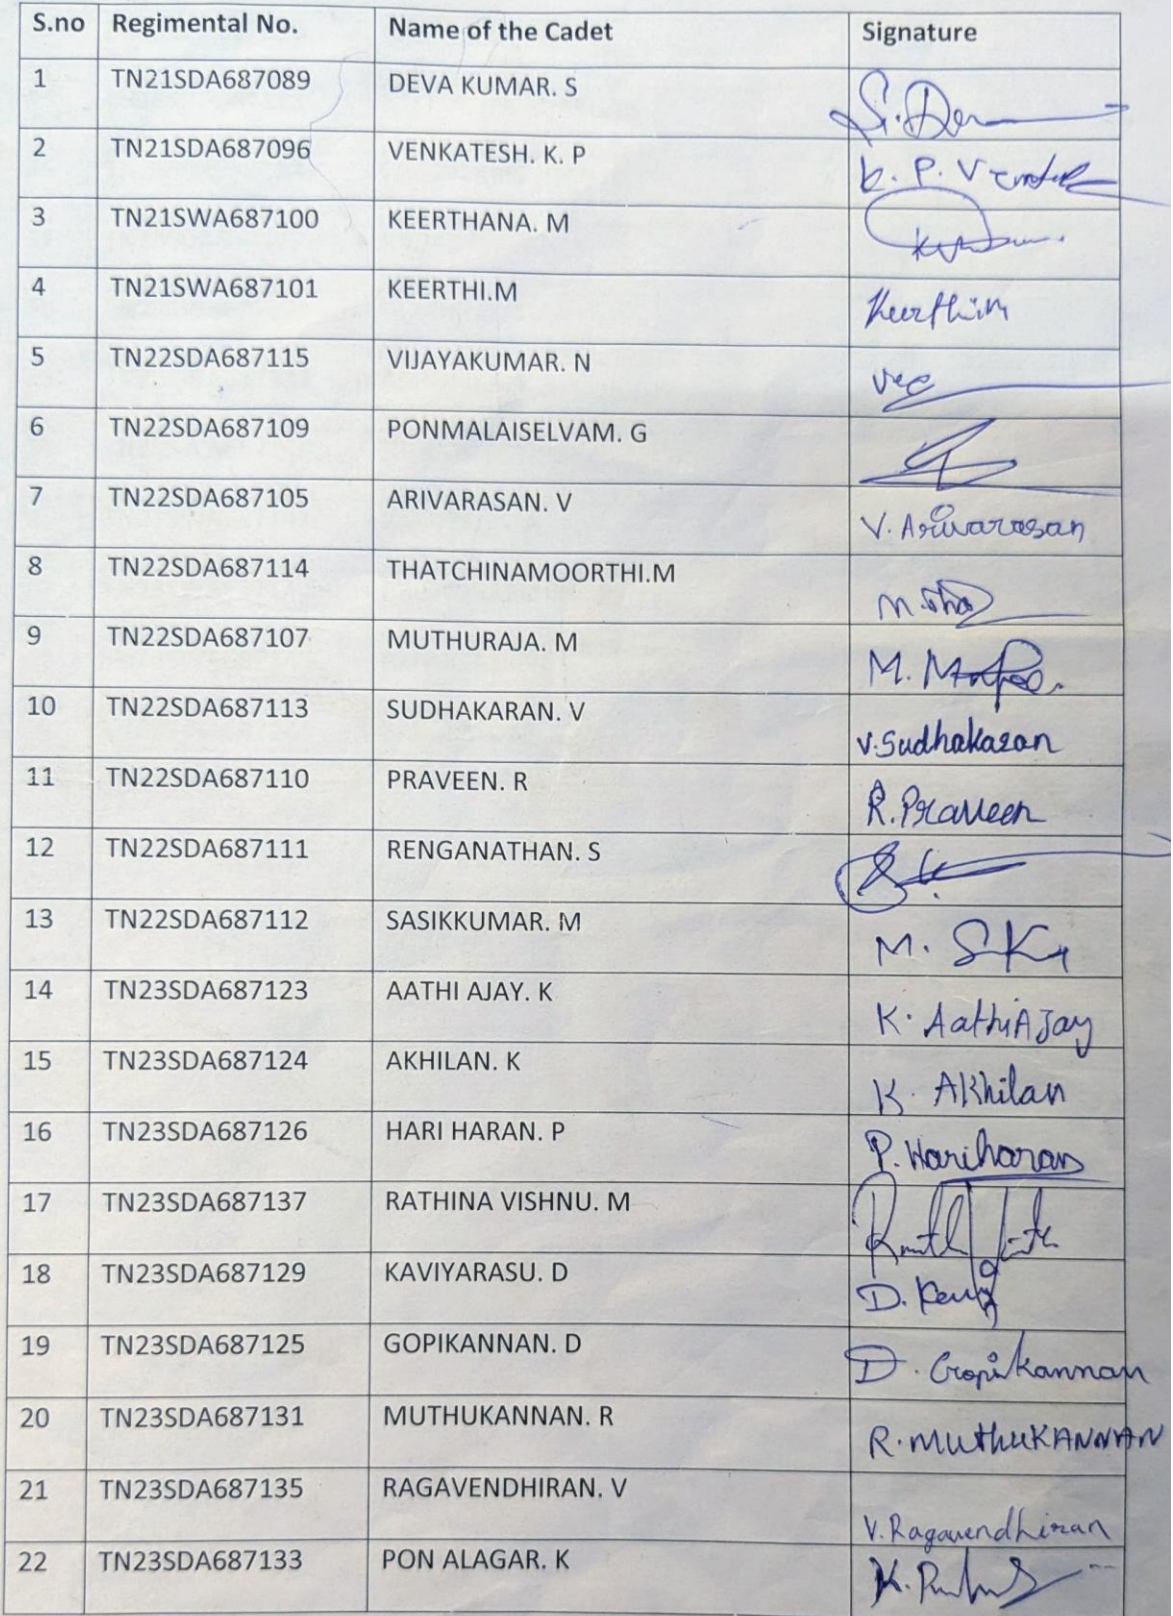 S.no Regimental No. Name of the Cadet Signature
1 TN21SDA687089 DEVA KUMAR. S
2 TN21SDA687096 VENKATESH. K. P K. P. V
3 TN21SWA687100 KEERTHANA. M
4 TN21SWA687101 KEERTHI.M Keerthi.M
5 TN22SDA687115 VIJAYAKUMAR. N
6 TN22SDA687109 PONMALAISELVAM. G
7 TN22SDA687105 ARIVARASAN. V V. Arivarasan
8 TN22SDA687114 THATCHINAMOORTHI.M
9 TN22SDA687107 MUTHURAJA. M M.
10 TN22SDA687113 SUDHAKARAN. V V.Sudhakaran
11 TN22SDA687110 PRAVEEN. R R.Praveen
12 TN22SDA687111 RENGANATHAN. S
13 TN22SDA687112 SASIKKUMAR. M M. SK
14 TN23SDA687123 AATHI AJAY. K K. AathiAJay
15 TN23SDA687124 AKHILAN. K K. AKhilan
16 TN23SDA687126 HARI HARAN. P P. Hariharan
17 TN23SDA687137 RATHINA VISHNU. M
18 TN23SDA687129 KAVIYARASU. D D.
19 TN23SDA687125 GOPIKANNAN. D D. Gopikannan
20 TN23SDA687131 MUTHUKANNAN. R R. MUthUKANNAN
21 TN23SDA687135 RAGAVENDHIRAN. V V.Ragavendhiran
22 TN23SDA687133 PON ALAGAR. K K.